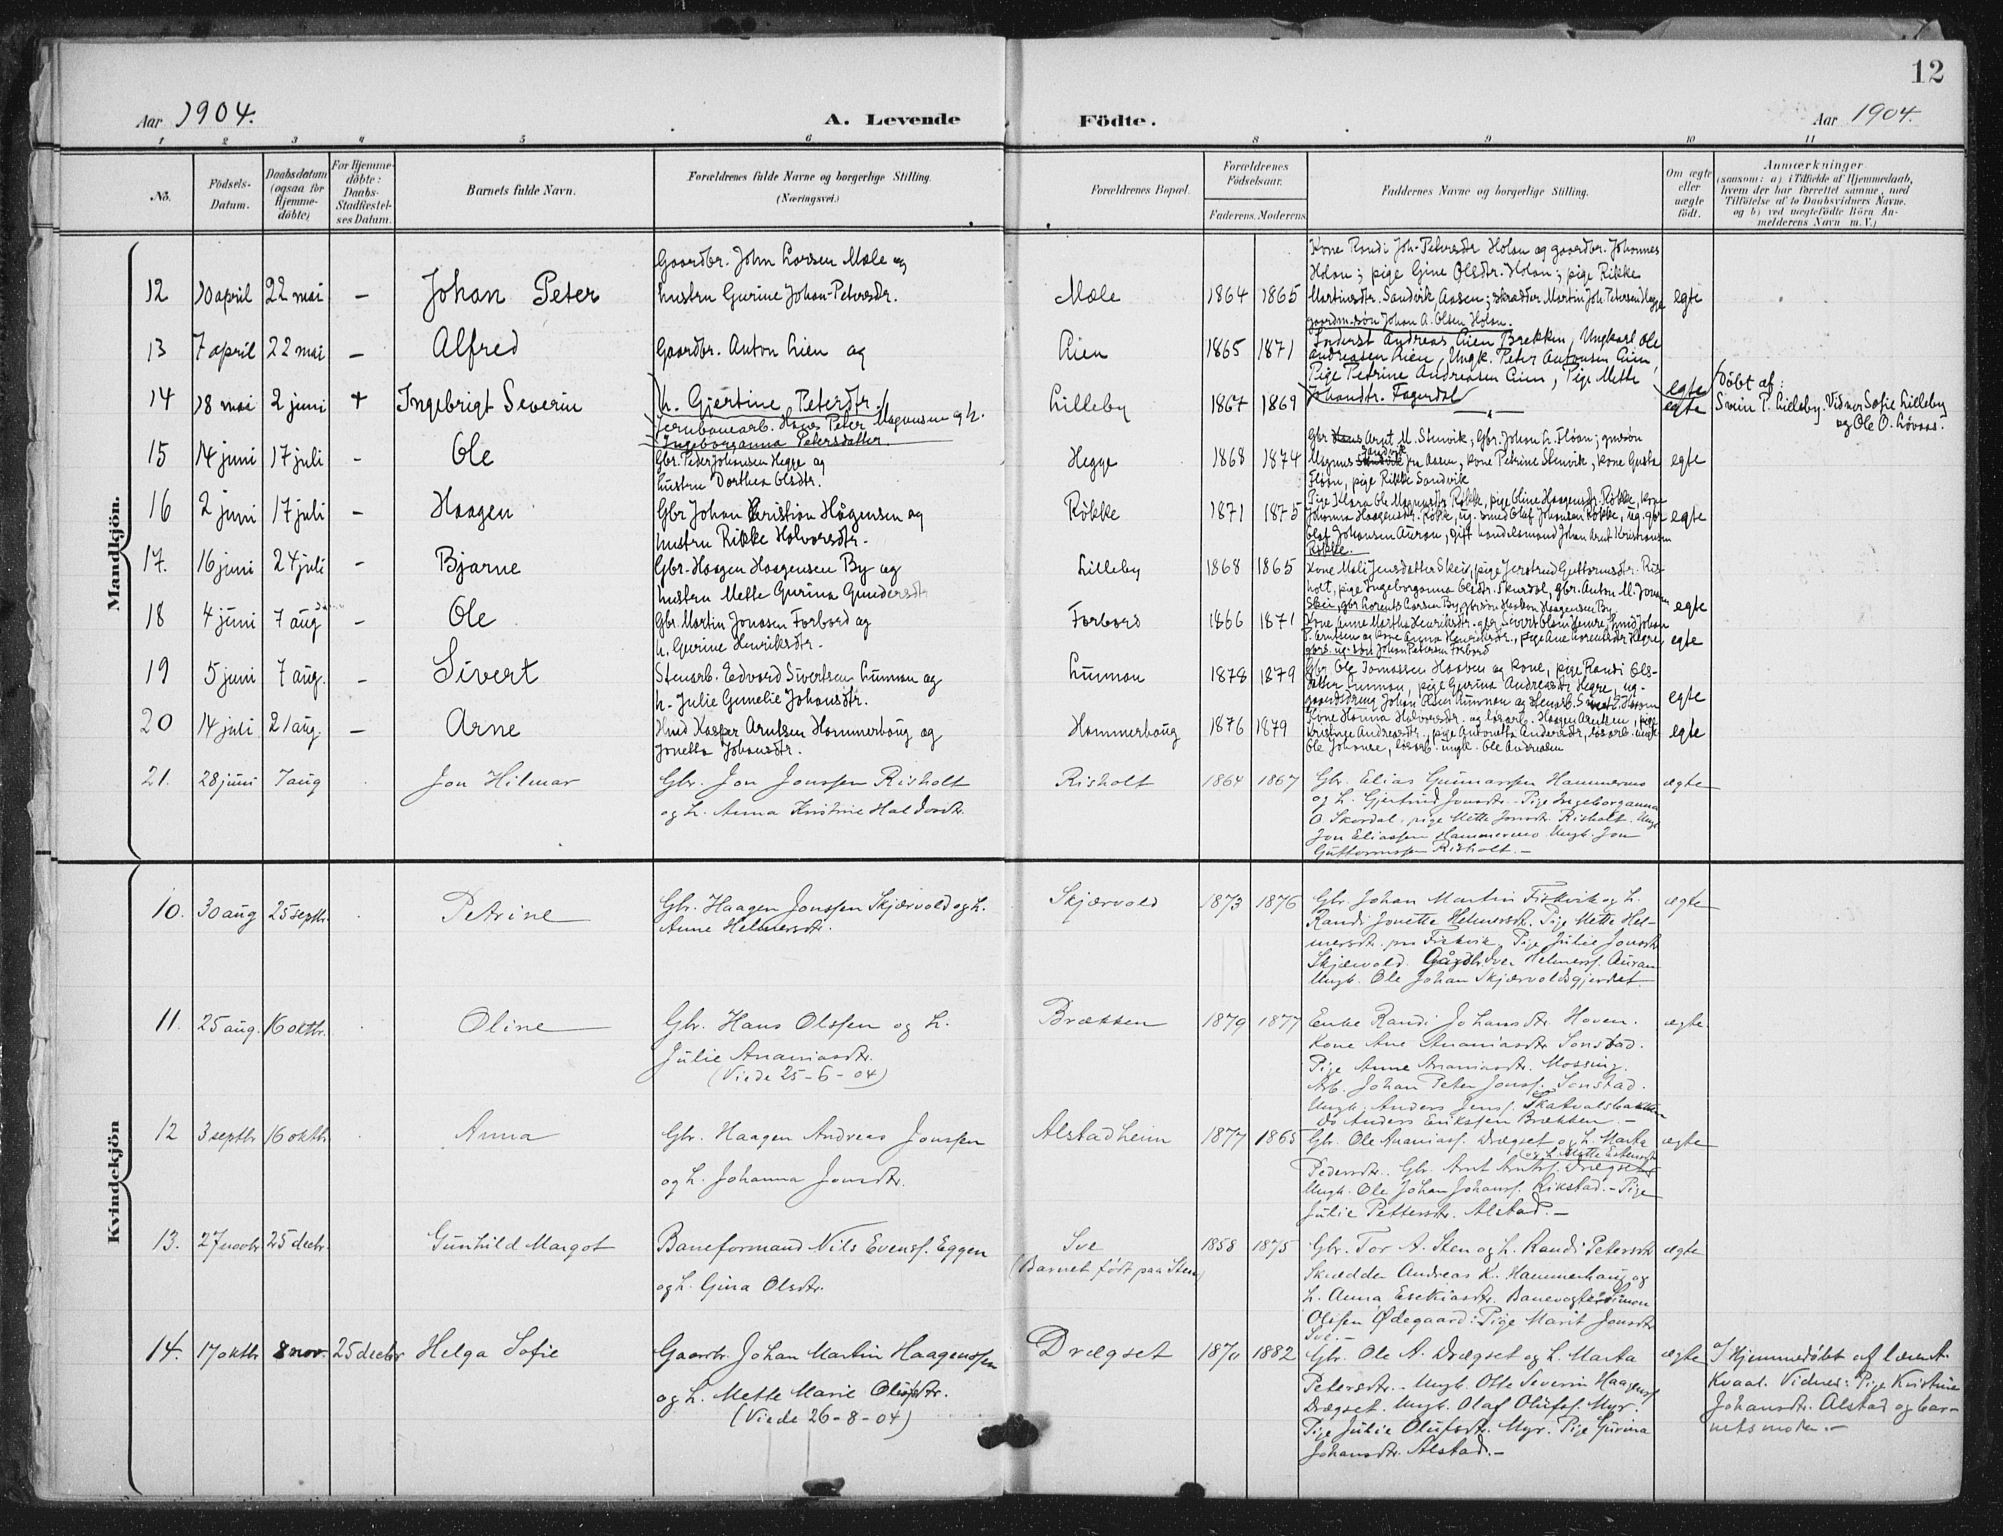 12
Aar 1904.
A. Levende Födte.
Aar 1904.
1 2 3 4 5 6 8 9 10 11
No.
Födsels-Datum.
Daabsdatum (ogsaa for Hjemme-döbte)
For Hjemme-döbte: Daabs-Stadfæstel-ses Datum.
Barnets fulde Navn.
Forældrenes fulde Navne og borgerlige Stilling. (Næringsvei.)
Forældrenes Bopæl.
Forældrenes Födselsaar.
Faderens. Moderens.
Faddernes Navne og borgerlige Stilling.
Om ægte eller uægte födt.
Anmærkninger
(saasom: a) i Tilfælde af Hjemmedaab,
hvem der har forrettet samme, med
Tilföielse af to Daabsvidners Navne.
og b) ved uægtefödte Börn An-
melderens Navn m. V.)
Mandkjön.
12 10 april 22 mai – Johan Peter
Gaardbr. John Larsen Mæle og
hustru Gurine Johan-Petersdtr.
Mæle 1864 1865
Kone Randi Joh-Petersdtr Holan og gaardbr. Johannes
Holan; pige Gine Olsdtr. Holan; pige Rikke
Martinsdtr. Sandvik Aasen; skrædder Martin Joh. Petersen Hegge
gaardm.søn Johan A. Olsen Holan.
egte
13 7 april 22 mai – Alfred
Gaardbr. Anton Lien og
h. Gjertine Petersdtr.
Lien 1865 1871
Inderst Andreas Lien Brekken, Ungkarl Ole
Andreasen Lien, Ungk. Peter Antonsen Lien,
Pige Petrine Andreasen Lien, Pige Mette
Johandtr. Fagerdal
egte
14 18 mai 2 juni + Ingebrigt Severin
Jernbanearb. Hans Peter Magnusen og h.
Ingeborganna Petersdatter.
Lilleby 1867 1869
egte
Döbt af:
Svein P. Lilleby. Vidner Sofie Lilleby
og Ole O. Løvaas.
15 14 juni 17 juli – Ole
Gbr. Peder Johansen Hegge og
hustru Dorthea Olsdtr.
Hegge 1868 1874
Gbr Hans Arnt M. Stenvik; Gbr. Johan L. Fløan; gmsøn
Magnus Sandvik fra Aasen, kone Petrine Stenvik, kone Gusta
Fløan, pige Rikke Sandvik
egte
16 2 juni 17 juli – Haagen
Gbr Johan Kristian Hågensen og
hustru Rikke Halvorsdtr.
Røkke 1871 1875
Pige Klara Ole Magnusdtr Røkke, pige Oline Haagensdtr. Røkke, kone
Johanna Haagensdtr. Røkke, ug. smed Olaf Johansen Røkke, ug. gbr
Olaf Johansen Auran, gift handelsmand Johan Arnt Kristiansen
Røkke.
egte
17. 16 juni 24 juli – Bjarne
Gbr. Haagen Haagensen By og
hustru Mette Gurina Gundersdtr
Lilleby 1868 1865
Kone Mali Jensdatter Skei, pige Jertrud Guttormsdtr. Ris-
holt, pige Ingeborganna Olsdtr. Skurdal, gbr. Anton M. Jonsen
Skei, gbr Lorents Larsen By, gbrsøn Haakon Haagensen By
egte
18 4 juni 7 aug – Ole
Gbr. Martin Jonasen Forbord og
h. Gurine Henriksdtr.
Forbord 1866 1871
egte
19 5 juni 7 aug. – Sivert
Stenarb. Edvard Sivertsen Lunnan og
h. Julie Gunelie Johansdtr.
Lunnan 1878 1879
Gbr. Ole Tomassen Haaben og kone, pige Randi Ols-
datter Lunnan, pige Gurina Andreasdtr Hegre, ug.
egte
20 14 juli 21 aug. – Arne
Hmd Kasper Arntsen Hammerhaug og
Jonetta Johansdtr.
Hammerhaug 1876 1879
Kone Hanna Halvorsdtr. og løsarb. Haagen Arntsen, pige
Kristine Andreasdtr, pige Antonetta Andersdtr, løsarb. ungk.
Ole Johnsen, løsarb. ungk. Ole Andreasen
egte
21. 28 juni 7 aug Jon Hilmar
Gbr. Jon Jonssen Risholt
og h. Anna Kristine Haldorsdtr.
Risholt 1864 1867
Gbr. Elias Gunnarssen Hammermo
og h. Gjertrud Jonsdtr. – Pige Ingeborganna
O. Skordal, pige Mette Jonsdtr Risholt. Ungk.
Jon Eliassen Hammermo. Ungk. Jon
Guttormssen Risholt. –
ægte
Kvindekjön
10. 30 aug 25 septbr. Petrine
Gbr. Haagen Jonssen Skjærvold og h.
Anne Helmersdtr.
Skjærvold 1873 1876
Gbr Johan Martin Fiskvik og h.
Randi Jonette Helmersdtr. Pige Mette Hel-
mersdtr. paa Fiskvik, Pige Julie Jonsdtr
Skjærvold. Gårdbr. Iver Helmerss. Auran
Ungk. Ole Johan Skjærvoldsgjerdet.
ægte
11. 25 aug. 16 oktbr. Oline
Gbr. Hans Olssen og h.
Julie Ananiasdtr.
(Viede 25-6-04)
Brækken 1879 1877
Enke Randi Johansdtr. Hoven.
Kone Ane Ananiasdtr Sonstad.
Pige Anne Ananiasdtr. Mossing.
Arb. Johan Peter Jonss. Sonstad.
Ungk. Anders Jenss. Skatvalsbakken
Do Anders Erikssen Brækken. –
ægte
12 3 septbr 16 oktbr. Anna
Gbr. Haagen Andreas Jonssen
og h. Johanna Jonsdtr.
Alstadheim 1877 1865
Gbr. Ole Ananiass. Drægset og h. Marta
Pedersdtr. Gbr. Arnt Arntss. Drægset
Ungk. Ole Johan Johanss. Rikstad. – Pige
Julie Pettersdtr. Alstad. –
ægte
13. 27 novbr 25 decbr. Gunhild Margot
Baneformand Nils Evenss. Eggen
og h. Gina Olsdtr.
Sve
(Barnet født paa Sten)
1858 1875
Gbr. Tor A. Sten og h. Randi Petersdtr
Skrædder Andreas K. Hammerhaug og
h. Anna Esekiasdtr. Banevogter Simon
Olssen Ødegaard: Pige Marit Jonsdtr
Sve. –
ægte
14. 17 oktbr 8 nov. 25 decbr Helga Sofie
Gaardbr. Johan Martin Haagenssen
og h. Mette Marie Olufsdtr.
(Viede 26-8-04)
Drægset 1870 1882
Gbr. Ole A. Drægset og h. Marta
Petersdtr. – Ungk. Otte Severin Haagenss
Drægset. Ungk. Olaf Olufss. Myr.
Pige Julie Olufsdtr. Myr. Pige Gurina
Johansdtr. Alstad. –
ægte
Hjemmedøbt af lærer A.
Kvaal. Vidner: Pige Kristine
Johansdtr. Alstad og bar-
nets moder. –